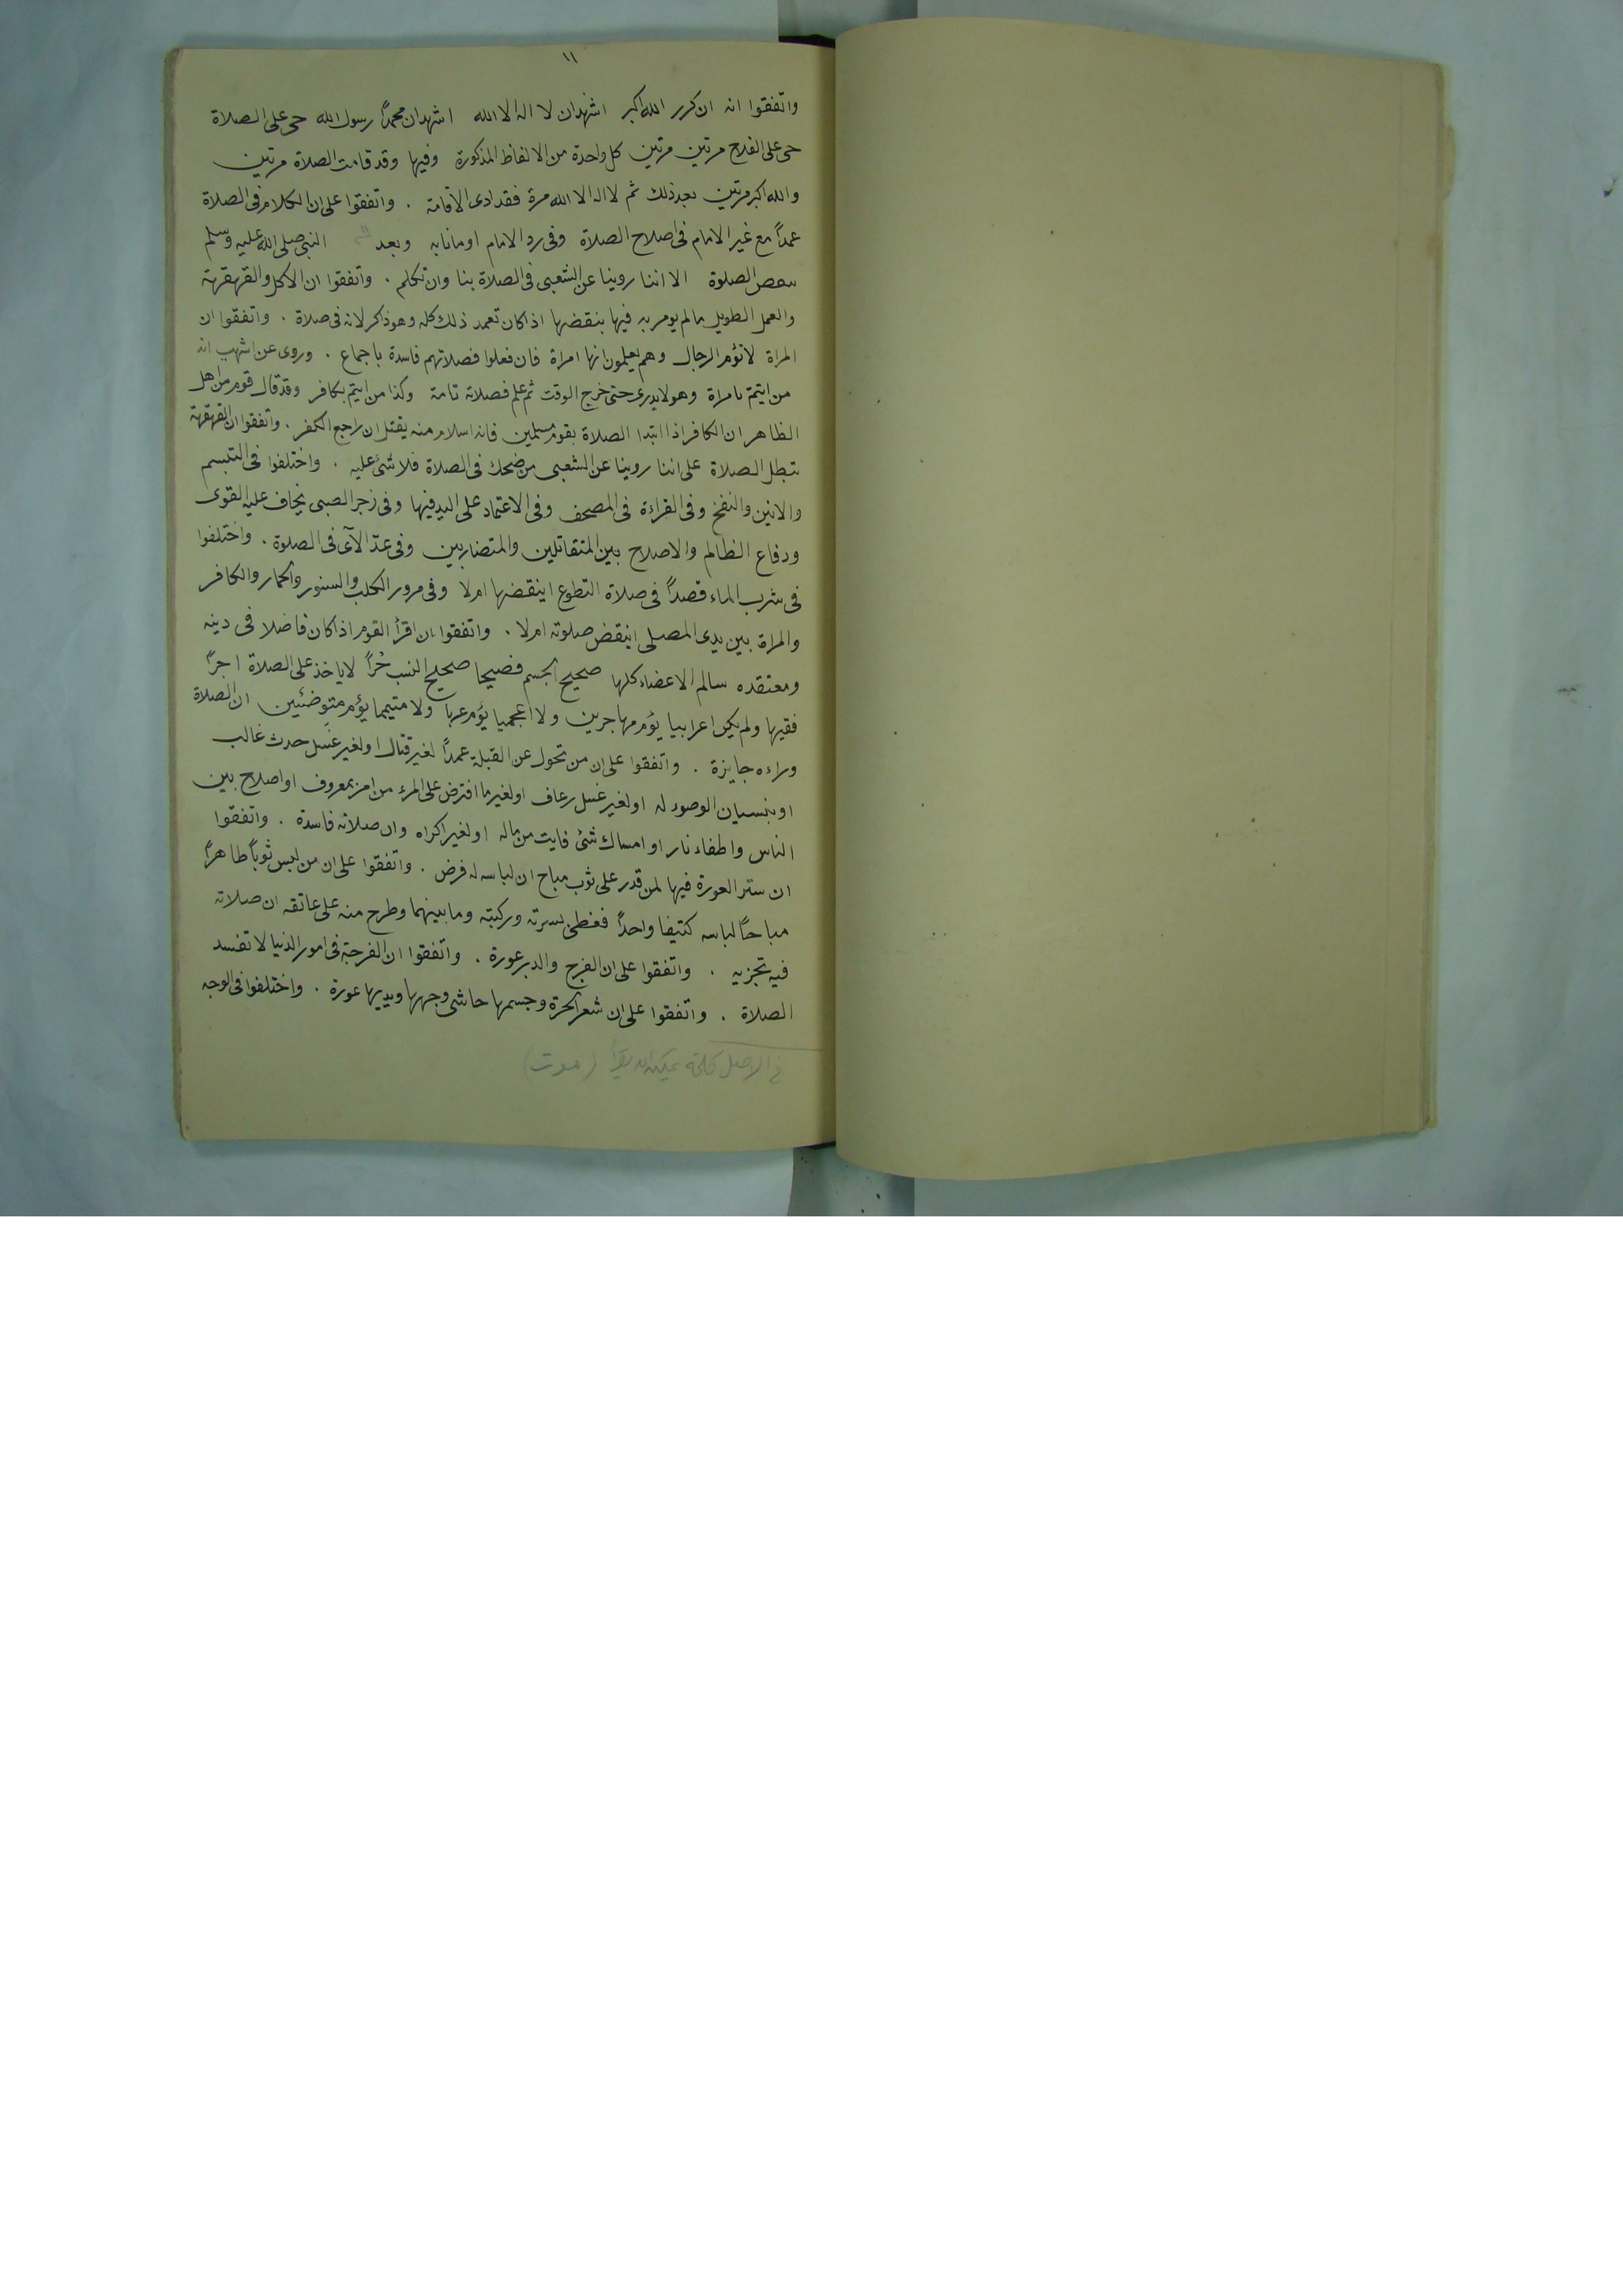 ١١
واتفقوا انه ان كرر الله اكبر اشهد ان لا اله الا الله اشهد ان محمداً رسول الله حى على الصلاة
حى على الفلاح مرتين مرتين كل واحدة من الالفاظ المذكورة وفيها وقد قامت الصلاة مرتين
والله اكبر مرتين بعد ذلك ثم لا اله الا الله مرة فقد ادى الاقامة . واتفقوا على ان الكلام فى الصلاة
عمداً مع غير الامام فى اصلاح الصلاة وفى رد الامام او مانابه وبعد النبى صلى الله عليه وسلم
الصلوة الا اننا روينا عن الشعبى فى الصلاة بنا وان تكلم . واتفقوا ان الاكل والقهقهة
والعمل الطويل مالم يومر به فيها ينقضها اذا كان تعمد ذلك كله وهو ذاكر لانه فى صلاة . واتفقوا ان
المراة لا تؤم الرجال وهم يعلمون انها امراة فان فعلوا فصلاتهم فاسدة باجماع . وروى عن اشهب انه
من ايتم بامراة وهو لا يدرى حتى خرج الوقت ثم علم فصلاته تامة وكذا من ايتم بكافر وقد قال قوم من اهل
الظاهر ان الكافر اذا ابتدا الصلاة بقوم مسلمين فانه اسلام منه يقتل ان راجع الكفر . واتفقوا ان القهقهة
تبطل الصلاة على اننا روينا عن الشعبى من ضحك فى الصلاة فلا شئ عليه . واختلفوا فى التبسم
والانين والنفخ وفى القراءة فى المصحف وفى الاعتماد على اليد فيها وفى زجر الصبى يخاف عليه القوى
ودفاع الظالم والاصلاح بين المتقاتلين والمتضاربين وفى عدّ الآى فى الصلوة . واختلفوا
فى شرب الماء قصداً فى صلاة التطوع اينقضها ام لا وفى مرور الكلب والسنور والحمار والكافر
والمراة بين يدى المصلى اينقض صلوته ام لا . واتفقوا ان اقرأ القوم اذا كان فاضلا فى دينه
ومعتقده سالم الاعضاء كلها صحيح الجسم فصيحا صحيح النسب حُراً لا ياخذ على الصلاة اجرًا
فقيها ولم يكن اعرابيا يؤم مهاجرين ولا اعجميا يؤم عربا ولا متيمما يؤم متوضئين ان الصلاة
وراءه جايزة . واتفقوا على ان من تحول عن القبلة عمداً لغير قتال او لغير غسل حدث غالب
او بنسيان الوصود له او لغير غسل رعاف او لغير ما افترض على المرء من امر بمعروف او اصلاح بين
الناس واطفاء نار او امساك شئ فايت من ماله او لغير اكراه وان صلاته فاسدة . واتفقوا
ان ستر العورة فيها لمن قدر على ثوب مباح ان لباسه له فرض . واتفقوا على ان من لبس ثوباً طاهراً
مباحاً لباسه كثيفا واحداً فغطى سرته وركبته وما بينهما وطرح منه على عاتقه ان صلاته
فيه تجزيه . واتفقوا على ان الفرج والدبر عورة . واتفقوا ان الفرجة فى امور الدنيا لا تفسد
الصلاة . واتفقوا على ان شعر الحرة وجسمها حاشى وجهها ويديها عورة . واختلفوا فى الوجه
فى الاصل كلمة يمكن ان تقرأ (موت)